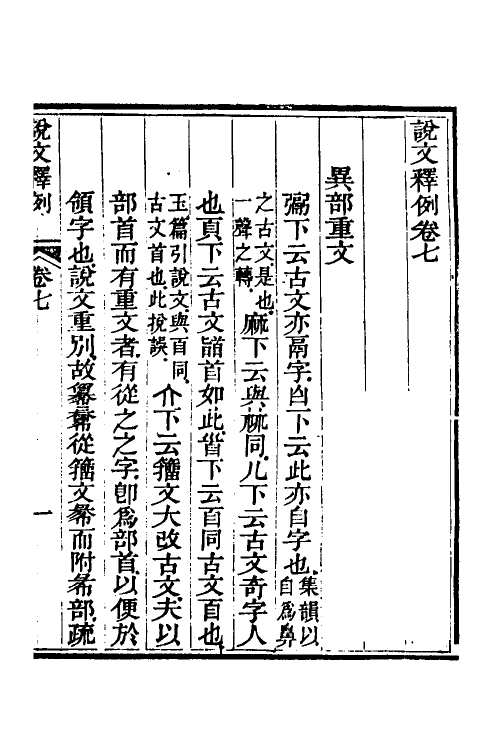 說文釋例卷七
異部重文
䰜下云古文亦鬲字白下云此亦自字也集韻以自爲鼻
之古文是也一聲之轉麻下云與𣏟同儿下云古文奇字人
也頁下云古文䭫首如此𦣻下云百同古文百也
玉篇引說文與百同古文首也此挩誤亣下云籒文大改古文夫以
部首而有重文者有從之之字卽爲部首以便於
領字也說文重別故從籒文而附㣇部疏
說文釋例
卷七
一